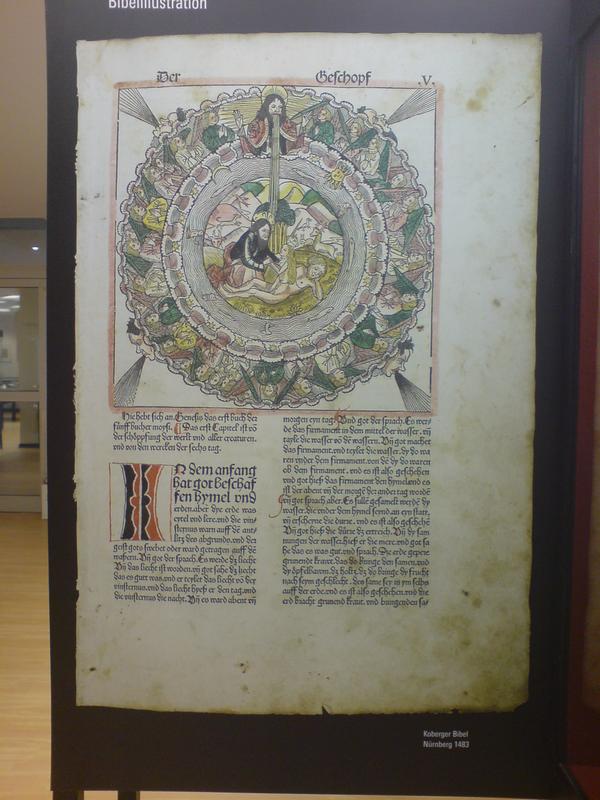 Bibelillustration
Der Geschopf .V.
Hie hebt sich an. Genesis das erst buch der
fünff bucher moysi. Das erst Capitel ist võ
der schöpffung der werlt vnd aller creaturen.
vnd von den wercken der sechs tag.
IN dem anfang
hat got beschaf
fen hymel vnd
erden. aber dye erde was
eytel vnd lere. vnd die vin
sternus warn auff dẽ ant
litz des abgrunds. vnd der
geist gots swebet oder ward getragen auff dẽ
wassern. Vñ got der sprach. Es werde dz liecht
Vñ das liecht ist worden. vñ got sahe dz liecht
das es gut was. vnd er teylet das liecht võ der
vinsternus. vnd das liecht hyeß er den tag. vnd
die vinsternus die nacht. Vñ es ward abent vñ
morgen eyn tag. Vnd got der sprach. Es wer
de das firmament in dem mittel der wasser. vñ
tayle die wasser võ dẽ wassern. Vñ got machet
das firmament. vnd teylet die wasser. dy do wa
ren vnder dem firmament. von dẽ dy do waren
ob dem firmament. vnd es ist also geschehen
vnd got hieß das firmament den hymel. vnd es
ist der abent vñ der morgẽ der ander tag wordẽ
Vñ got sprach aber. Es süllẽ gesamelt werdẽ dy
wasser. die vnder dem hymel seind. an eyn statt,
vñ erscheyne die dürre. vnd es ist also geschehẽ
Vñ got hieß die dürre dz ertreich. Vñ dy sam
nungen der wasser. hieß er die mere. vnd got sa
he das es was gut. vnd sprach. Die erde gepere
grunend kraut. das do bringe den samen. vnd
dy öpfelbawm. dz holtz. dz do bringe dy frucht
nach seym geschlecht. des same sey in ym selbs
auff der erde. vnd es ist also geschehen. vnd die
erd bracht grunend kraut. vnd bringenden sa
Koberger Bibel
Nürnberg 1483